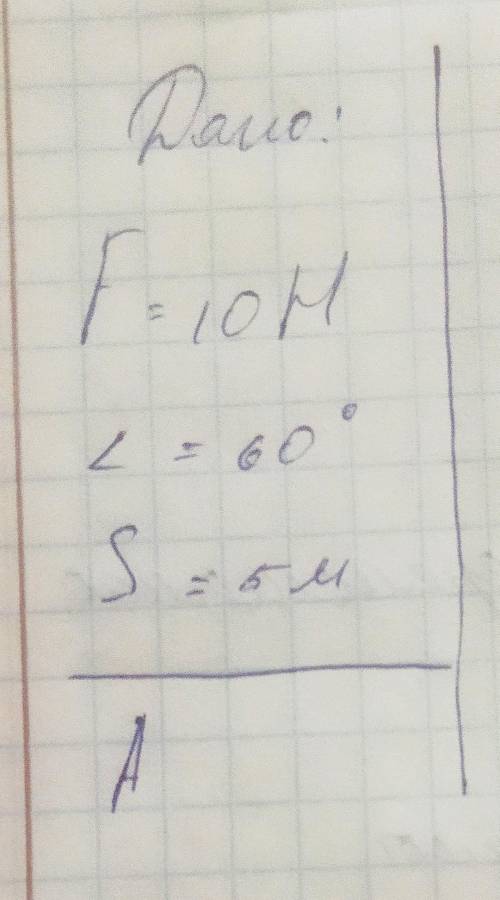 Дано:
F = 10 Н
∠ = 60°
S = 5 м
A